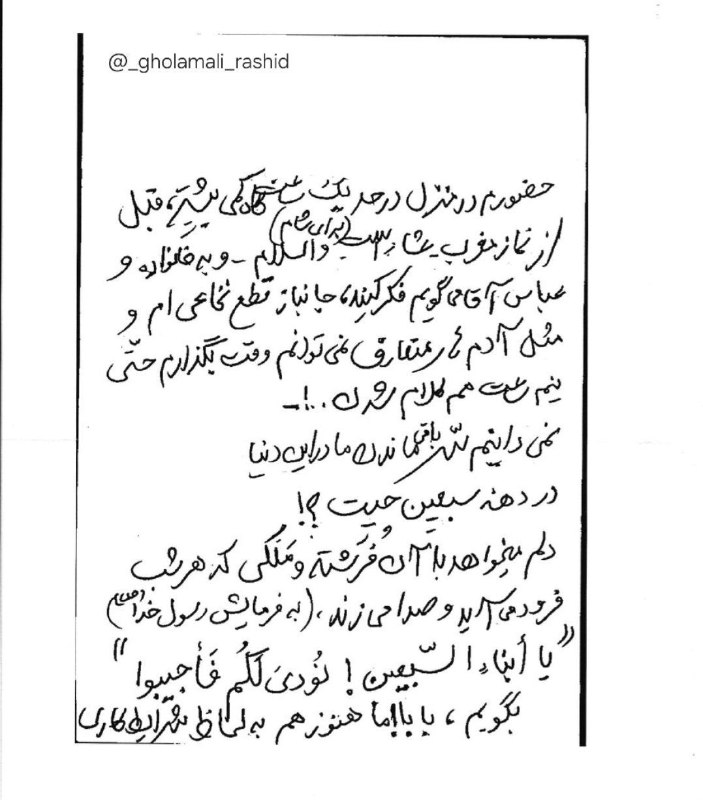 @_gholamali_rashid
حضورم در منزل در حد یک ساعت گاه کمی بیشتر، قبل
از نماز مغرب و عشاء است (برای شام) والسلام - و به خانواده و
عباس آقا می گویم فکر کنید، جانباز قطع نخاعی ام و
مثل آدم های متعارف نمی توانم وقت بگذارم حتّی
نیم ساعت هم کلام شدن ..!-
نمی دانیم سّر باقی ماندن ما در این دنیا
در دهه سبعین چیست ؟!
دلم میخواهد با آن فُرَشته و مَلَکی که هر شب
فرود می آید و صدا می زند، (به فرمایش رسول خدا (ص))
"یا أبناءِ السّبعین! نُودیَ لَکُم فَأجیبوا"
بگویم، بابا! ما هنوز هم به لحاظ شرایط کاری